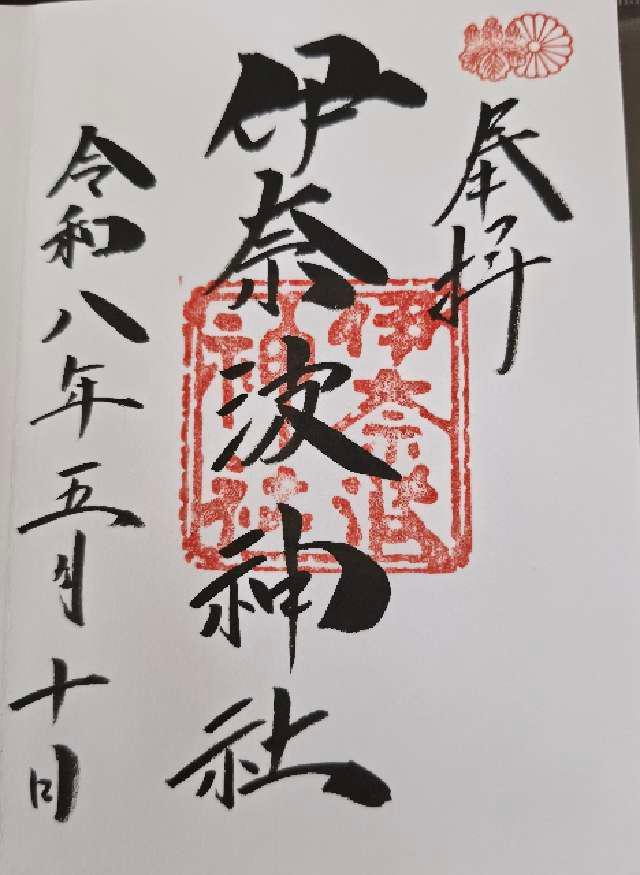 奉拝
伊奈波神社
伊奈波
神社
令和八年五月十日